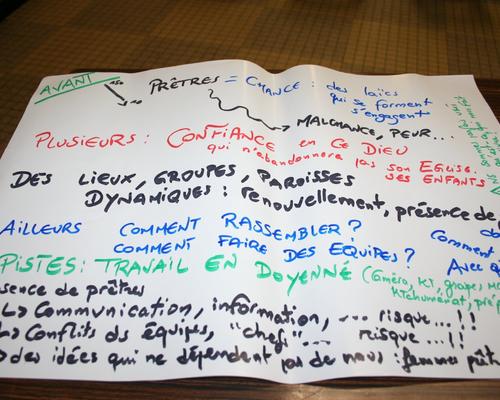 AVANT 150 → 10 PRÊTRES = CHANCE : des laïcs
qui se forment
s'engagent
MALCHANCE, PEUR...
PLUSIEURS : CONFIANCE en CE DIEU
qui n'abandonnera pas son EGLISE.
SES ENFANTS
DES LIEUX, GROUPES, PAROISSES
DYNAMIQUES : renouvellement, présence de
AILLEURS COMMENT RASSEMBLER ?
COMMENT FAIRE DES EQUIPES ?
Comment
Avec
PISTES : TRAVAIL EN DOYENNÉ
sence de prêtres
↳ Communication, information, ... risque...!!
↳ Conflits ds équipes, "chefs"... risque...!!
des idées qui ne dépendent pas de nous : femmes prêtre